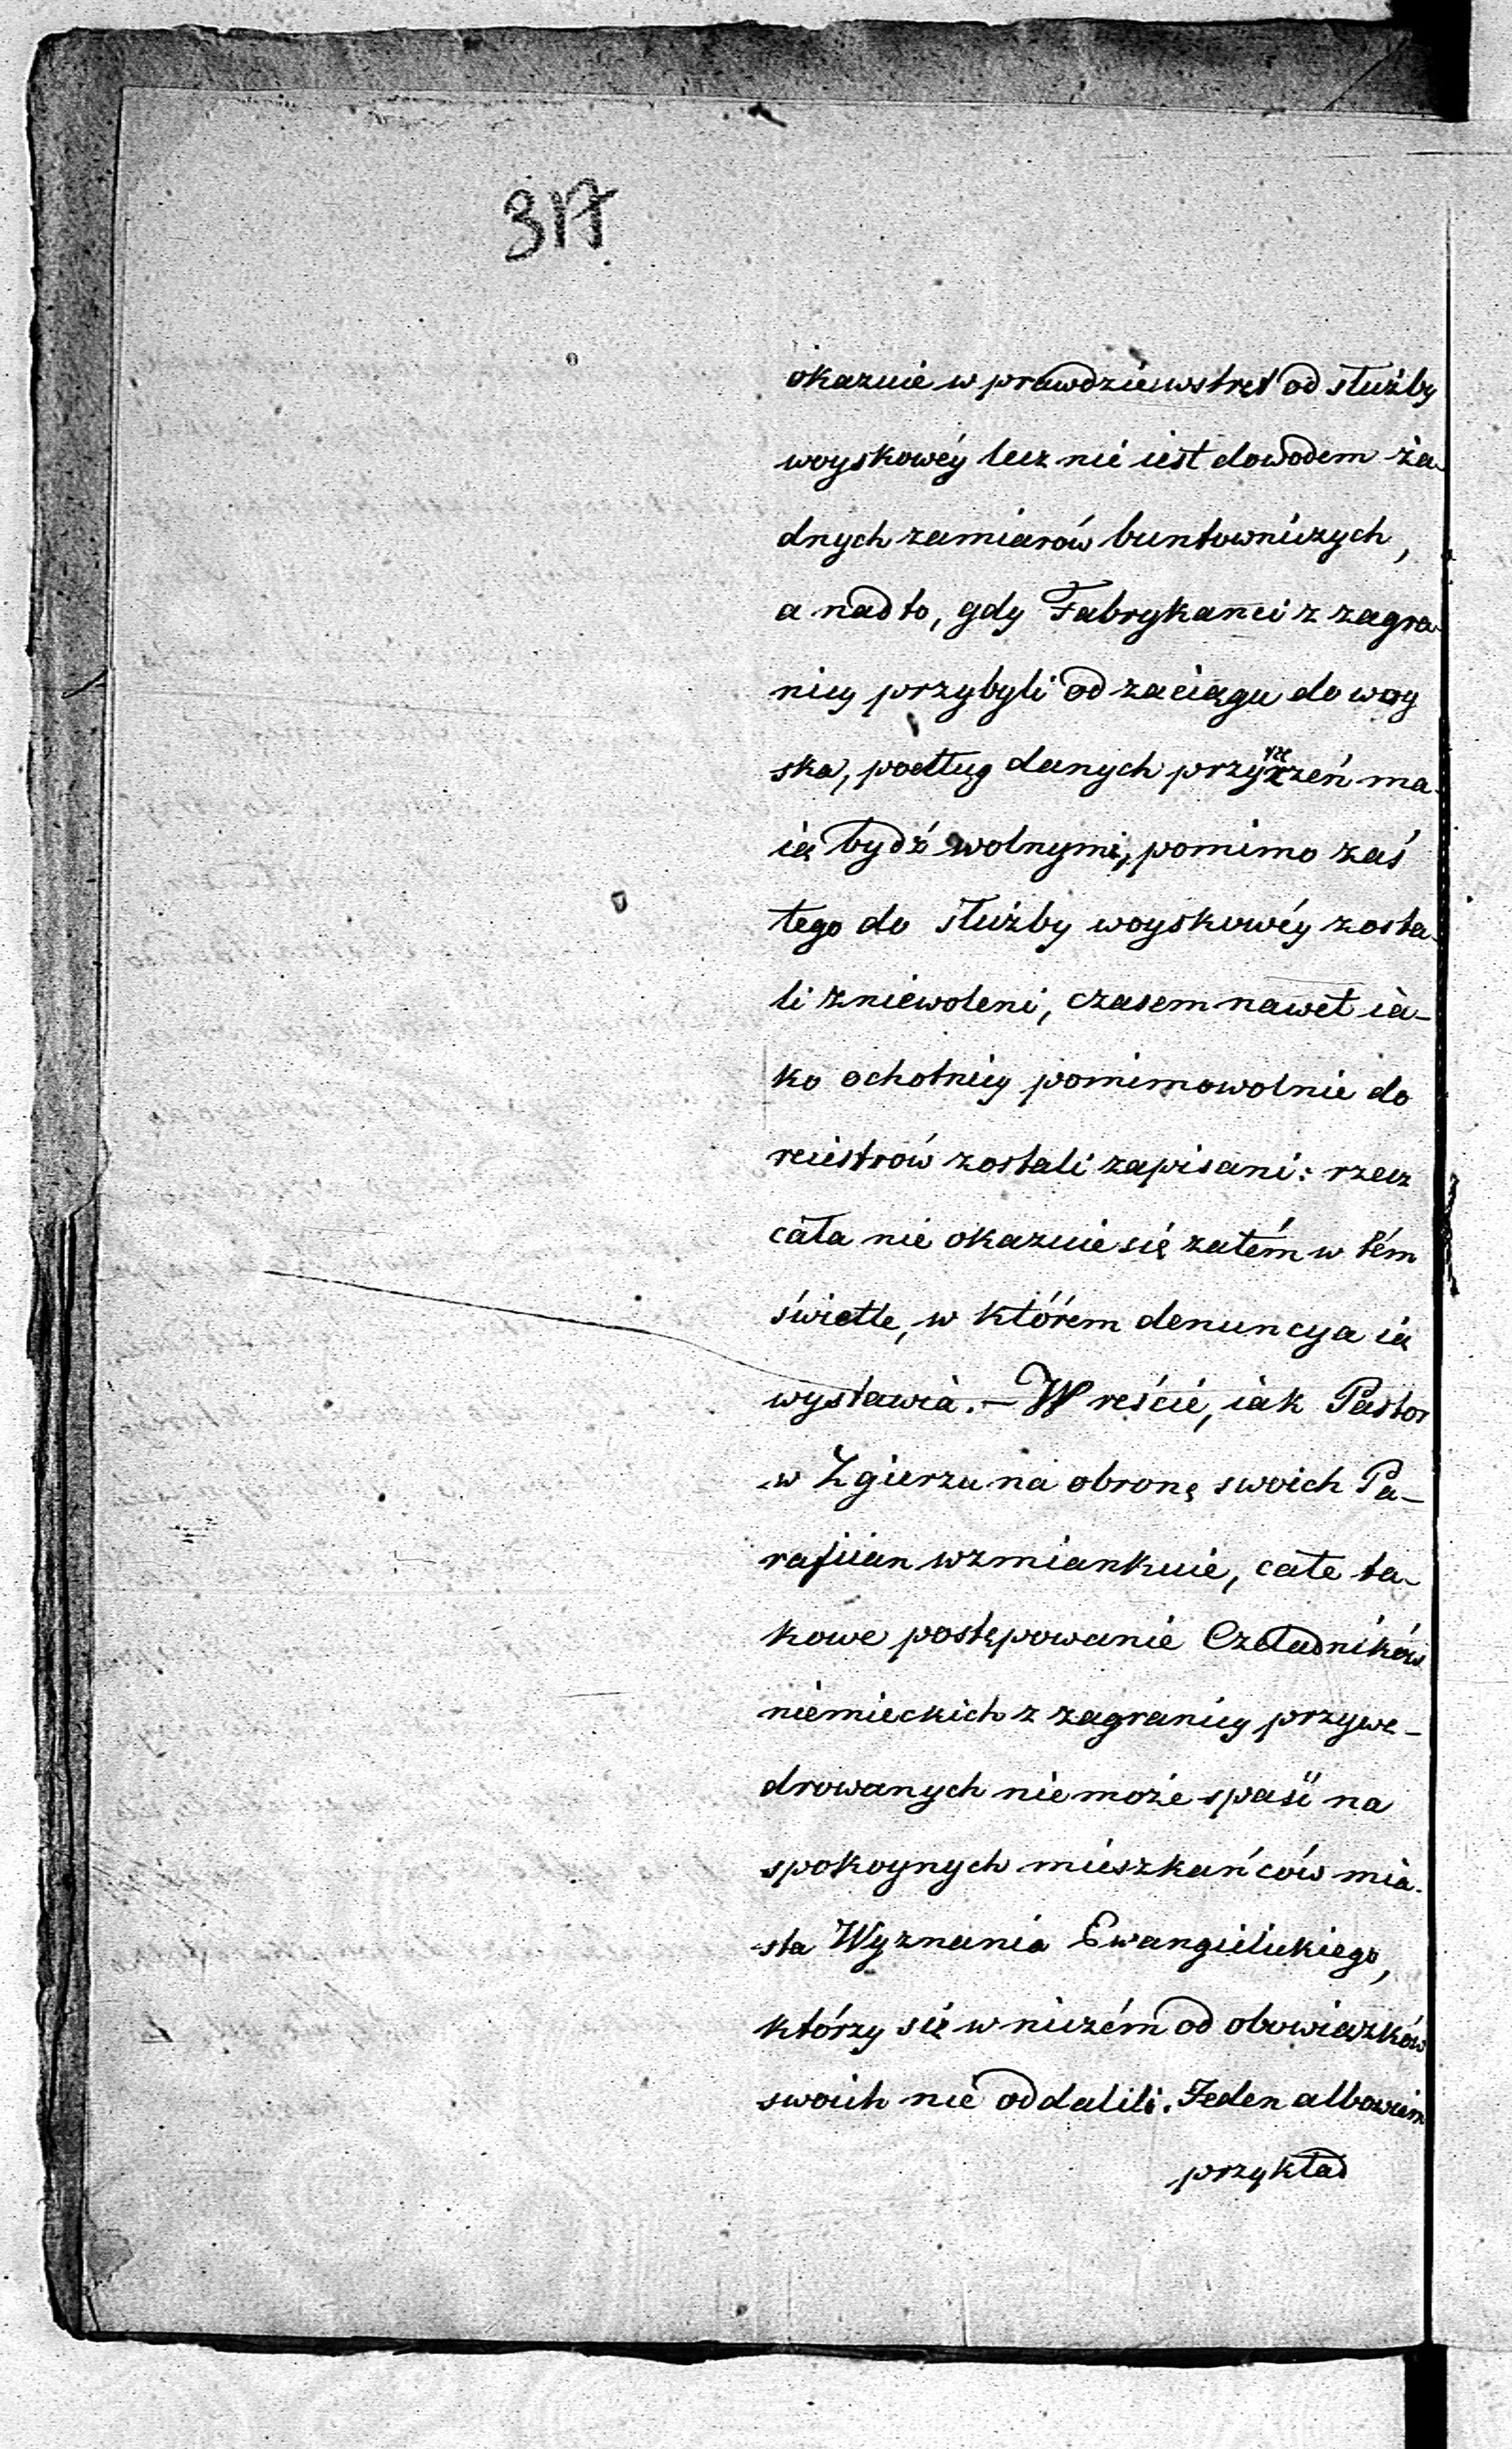 317
okazuie w prawdzie wstręt od służby
woyskowéy lecz nie iest dowodem ża-
dnych zamiarów buntowniczych,
a nadto, gdy Fabrykanci z zagra-
nicy przybyli od zaciągu do woy
ska, podług danych przyrzeń ma-
ią bydź wolnymi, pomimo zaś
tego do służby woyskowéy zosta-
li zniewoleni, czasem nawet ia-
ko ochotnicy pomimowolnie do
reiestrów zostali zapisani: rzecz
cała nie okazuie się zatém w tém
świetle, w którém denuncya ią
wystawia. – W reście, iak Pastor
w Zgierzu na obronę swoich Pa-
rafiian wzmiankuie, całe ta-
kowe postępowanie Czeladników
niemieckich z zagranicy przywę-
drowanych nie może spaść na
spokoynych mieszkańców mia-
sta Wyznania Ewangielickiego,
którzy się w niczém od obowiązków
swoich nie oddalili. Jeden albowiem
przykład